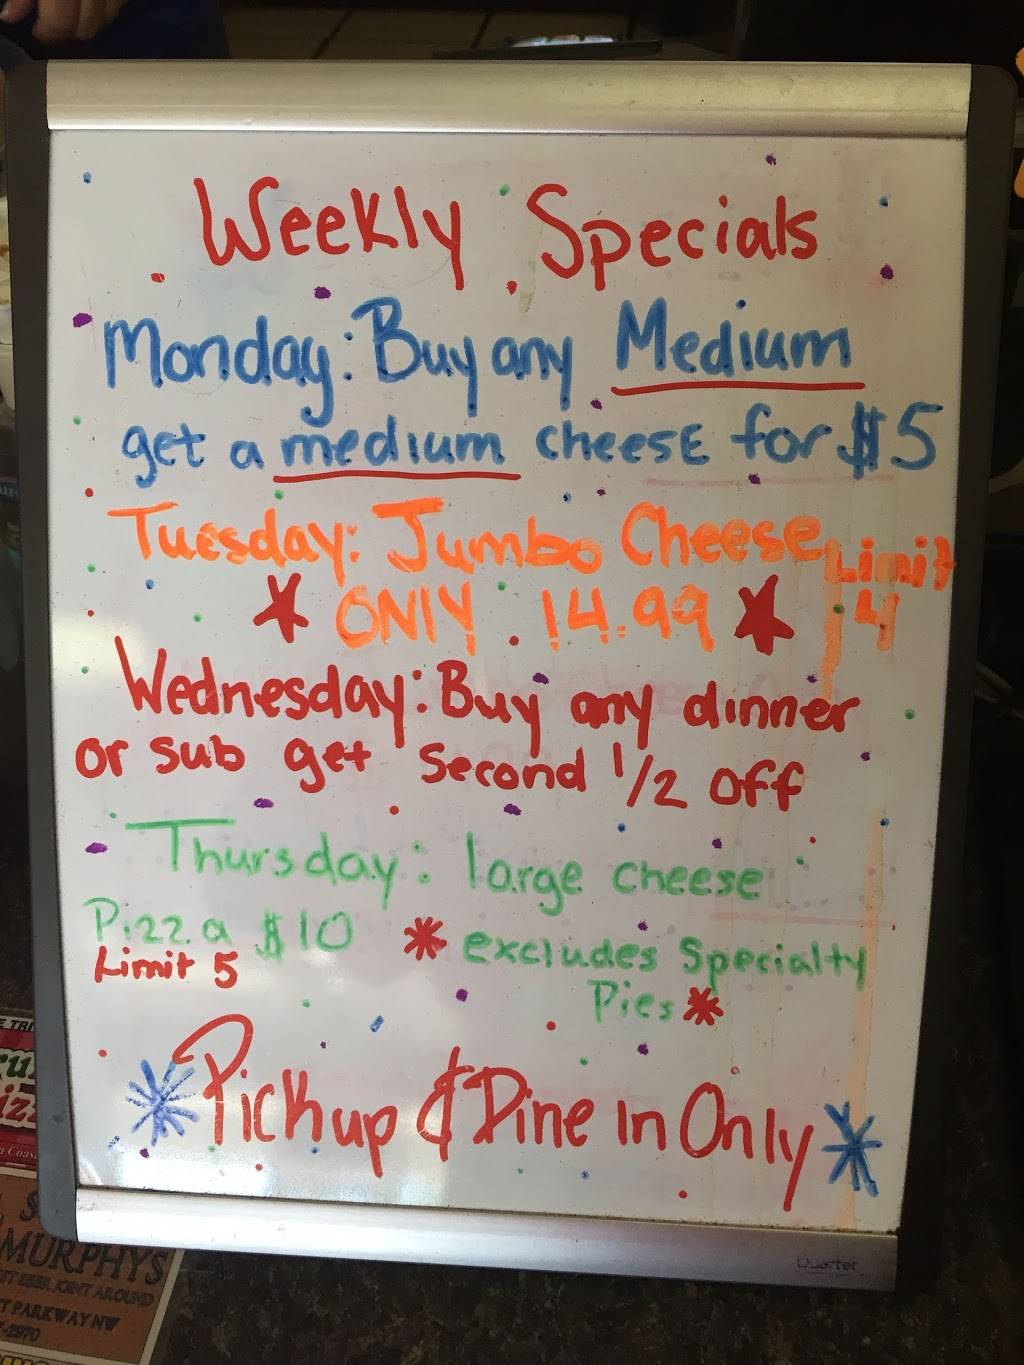 Weekly Specials
Monday: Buy any Medium
get a medium cheese for $5
Tuesday: Jumbo Cheese Limit 4
ONLY 14.99
Wednesday: Buy any dinner
or sub get second 1/2 off
Thursday: large cheese
Pizza $10 * excludes Specialty
Limit 5
Pies *
* Pick up & Dine in Only *
Quartet
MURPHYS
BEER JOINT AROUND
PARKWAY NW